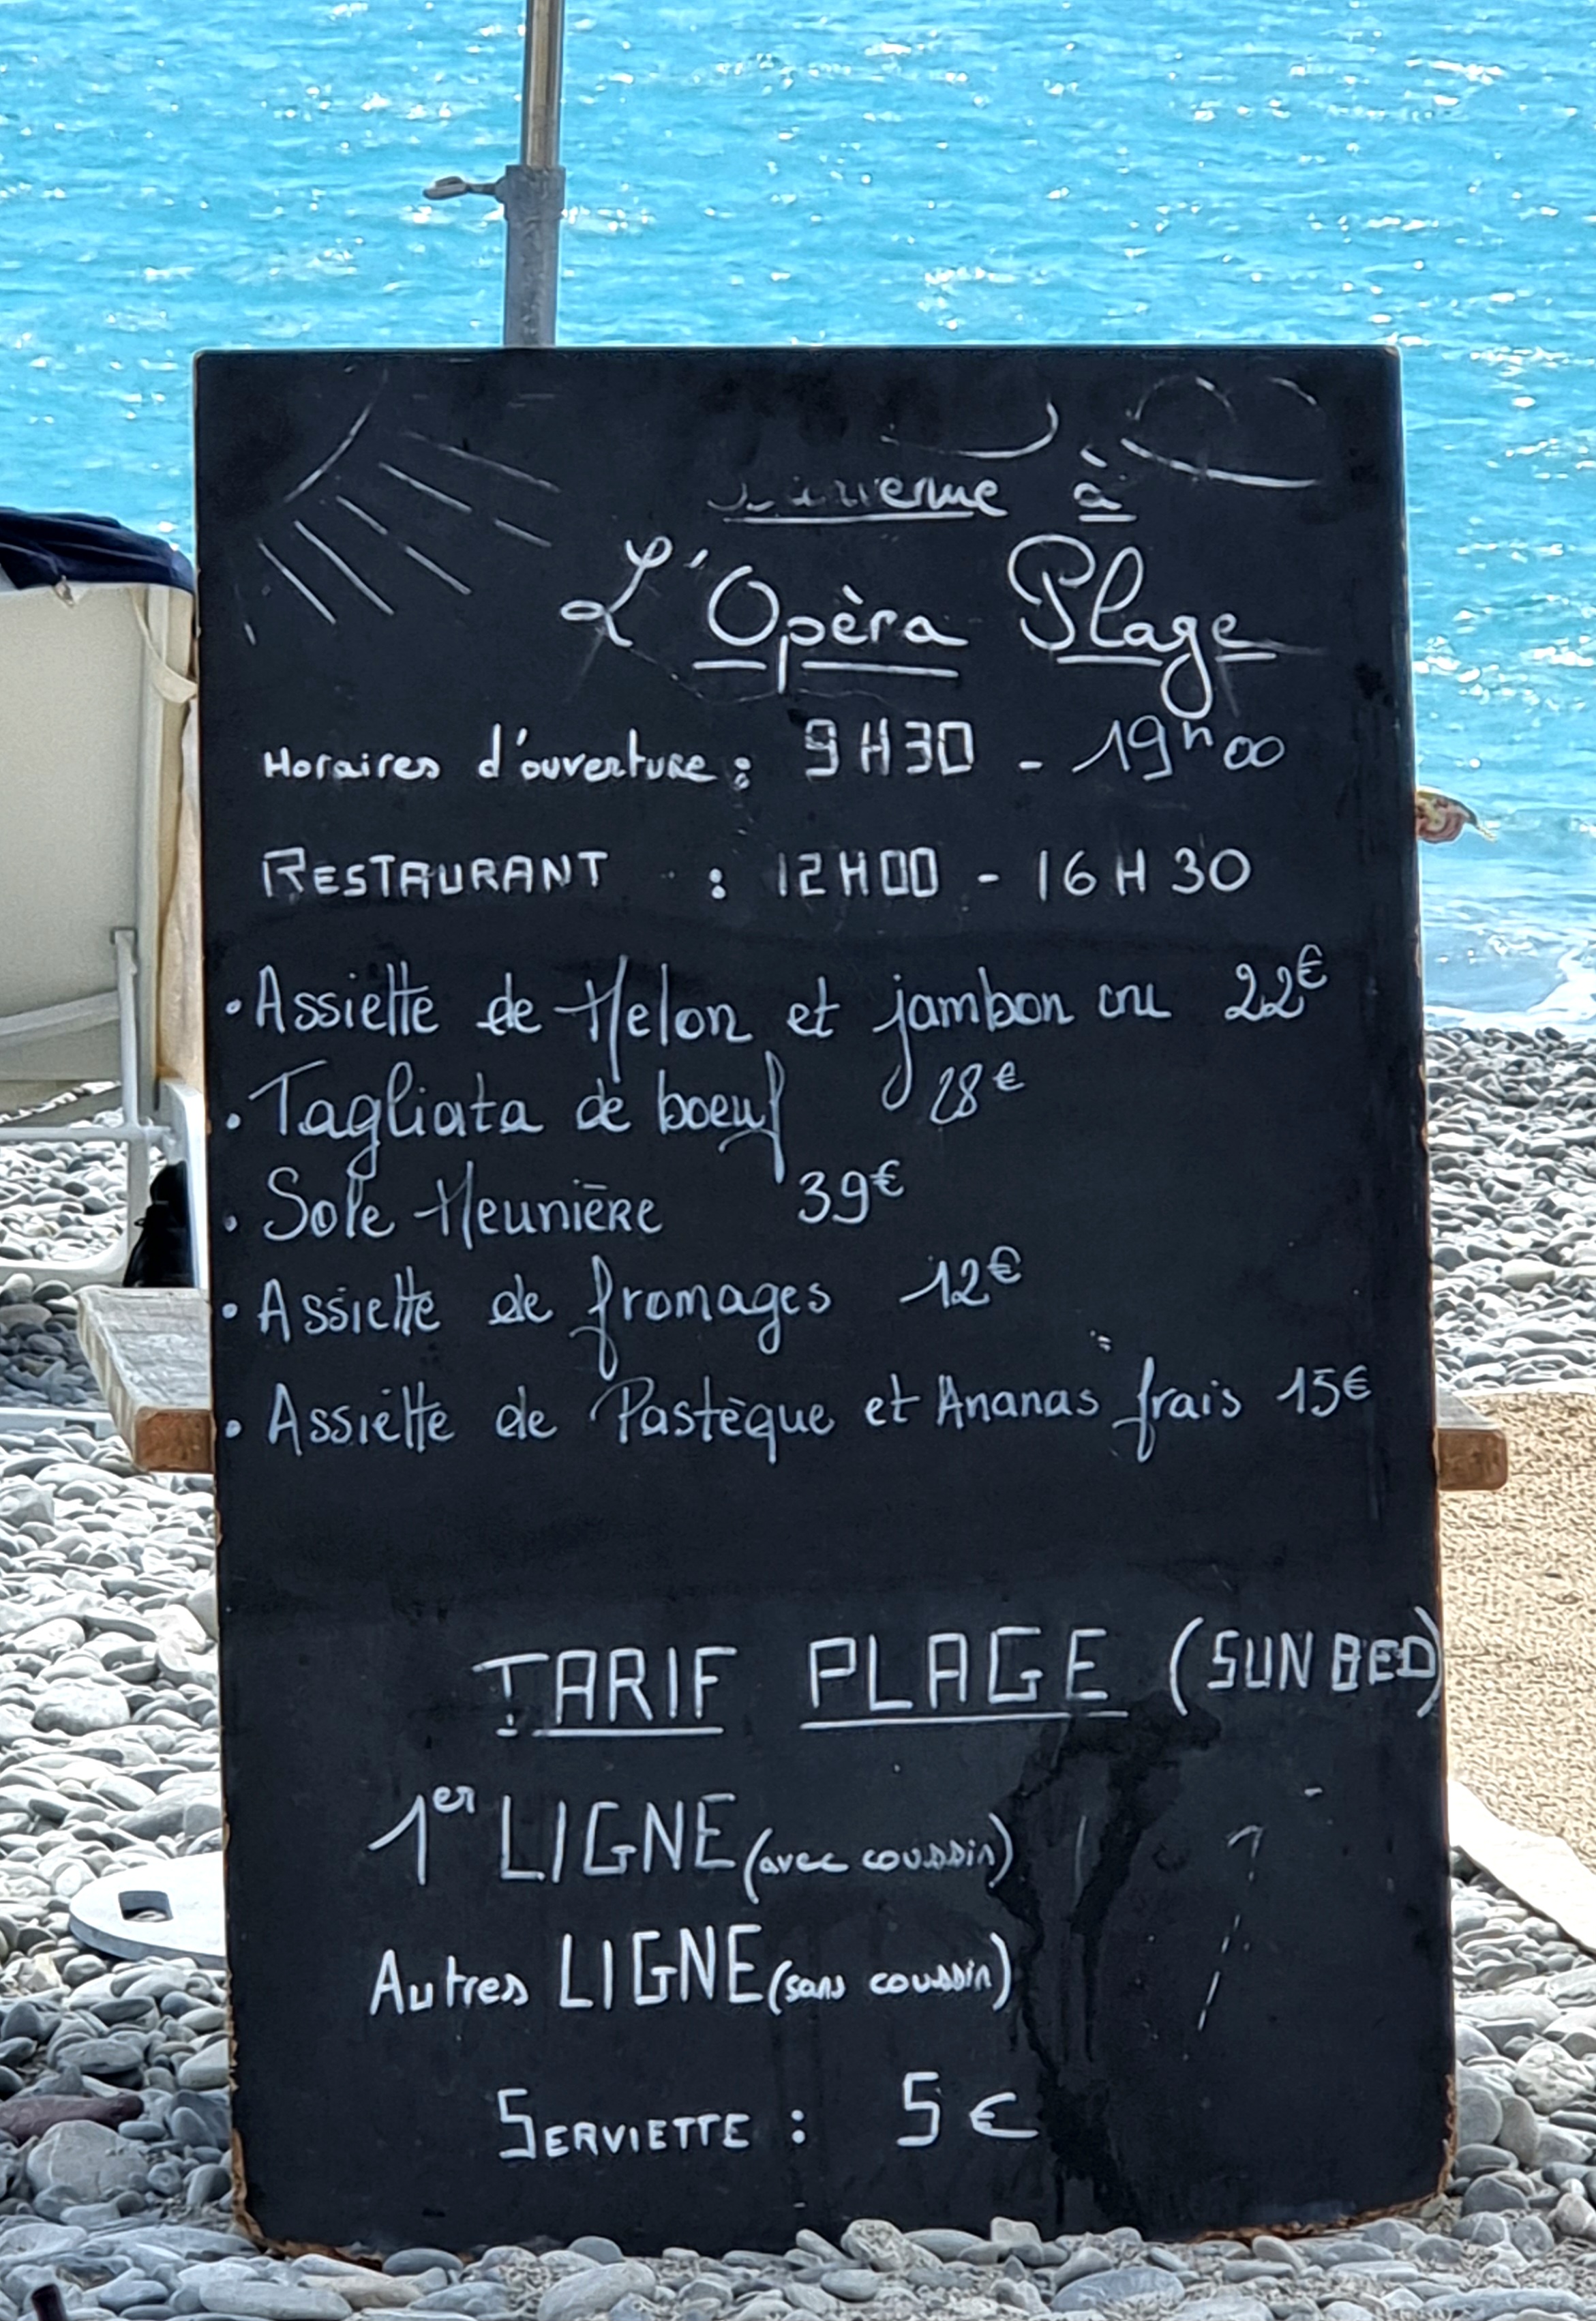 à
L'Opèra Plage
Horaires d'ouverture : 9H30 - 19h00
RESTAURANT : 12H00 - 16H30
• Assiette de Melon et jambon cru 22€
• Tagliata de boeuf 28€
• Sole Meunière 39€
• Assiette de fromages 12€
• Assiette de Pastèque et Ananas frais 15€
TARIF PLAGE (SUN BED)
1er LIGNE (avec coussin)
Autres LIGNE (sans coussin)
SERVIETTE : 5€